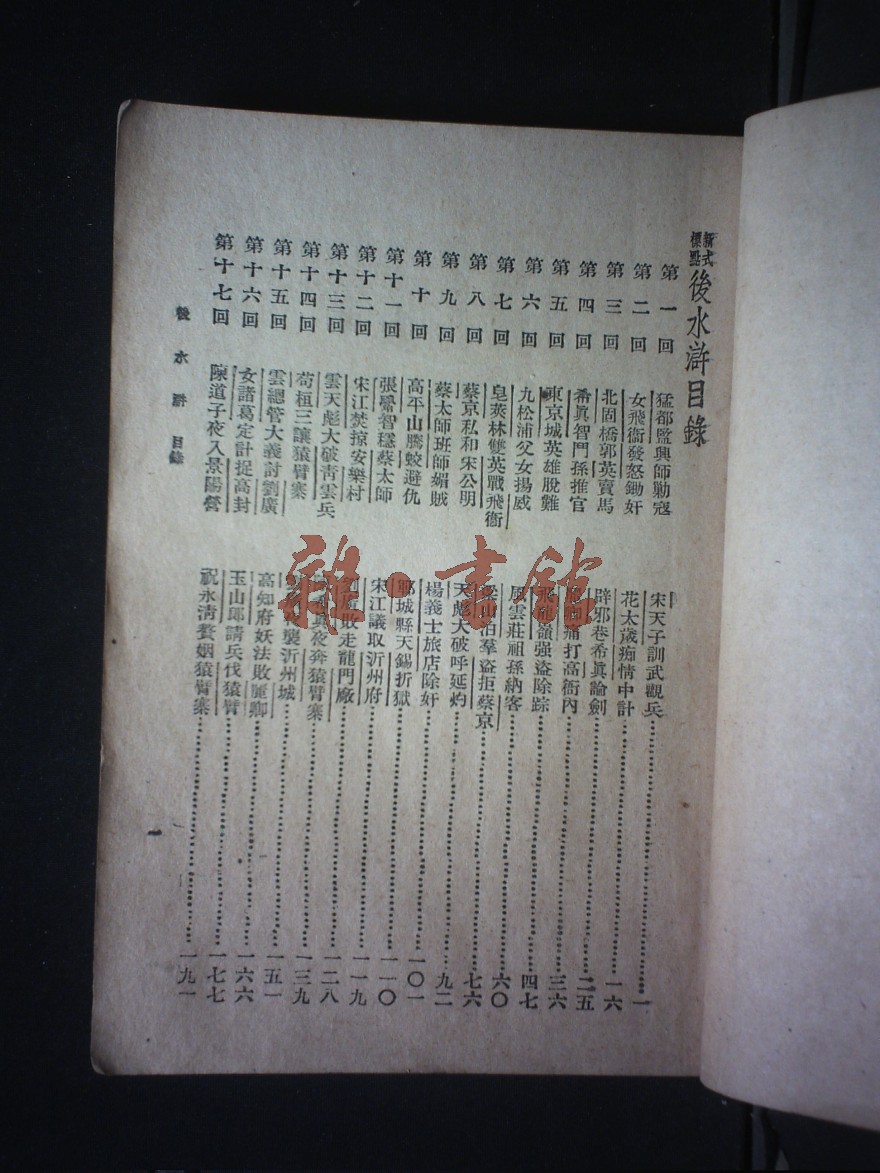 新式標點 後水滸目錄
第一回 猛都監興師勦寇 宋天子訓武觀兵 一
第二回 女飛衞發怒鋤奸 花太歲痴情中計 一六
第三回 北固橋郭英賣馬 辟邪巷希眞論劍 二五
第四回 希眞智鬥孫推官 痛打高衙內 三六
第五回 東京城英雄脫難 飛龍嶺强盜除踪 四七
第六回 九松浦父女揚威 風雲莊祖孫納客 六〇
第七回 皂莢林雙英戰飛衞 梁山泊羣盜拒蔡京 七六
第八回 蔡京私和宋公明 天彪大破呼延灼 九二
第九回 蔡太師班師媚賊 楊義士旅店除奸 一〇一
第十回 高平山騰蛟避仇 鄆城縣天錫折獄 一一〇
第十一回 張鳴智穩蔡太師 宋江議取沂州府 一一九
第十二回 宋江焚掠安樂村 劉廣敗走龍門廠 一二八
第十三回 雲天彪大破靑雲兵 希眞夜奔猿臂寨 一三九
第十四回 苟桓三讓猿臂寨 襲沂州城 一五一
第十五回 雲總管大義討劉廣 高知府妖法敗麗卿 一六六
第十六回 女諸葛定計捉高封 玉山郎請兵伐猿臂 一七七
第十七回 陳道子夜入景陽營 祝永淸贅姻猿臂寨 一九一
後水滸 目錄
一
雜·書館